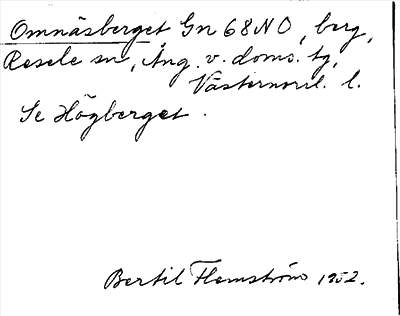 Omnäsberget Gn 68 NO, berg,
Resele sn, Ång. v. doms. tg,
Västernorrl. l.
Se Högberget.
Bertil Flemström 1952.